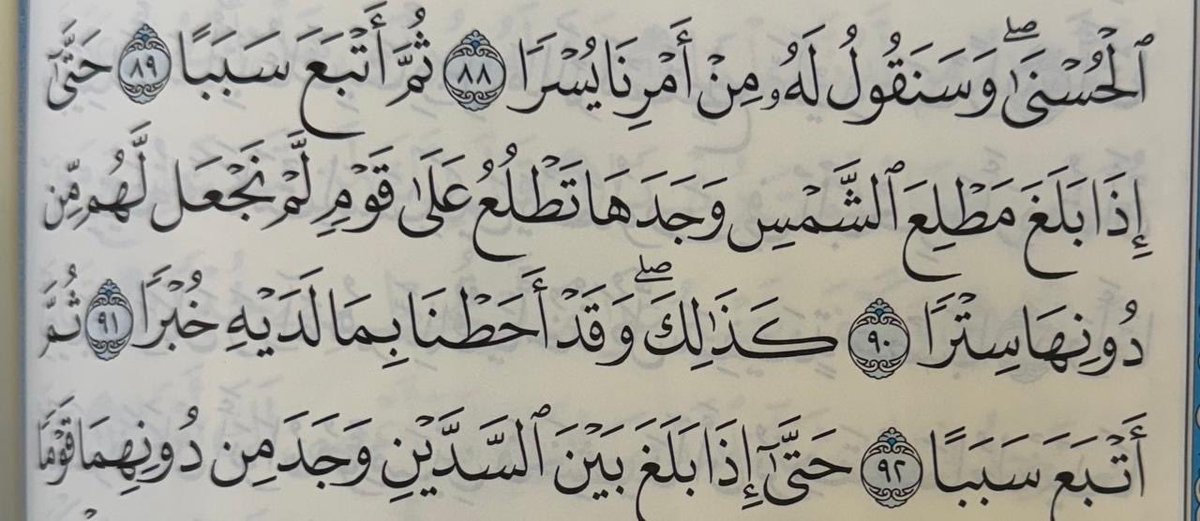 ٱلْحُسْنَىٰ ۖ وَسَنَقُولُ لَهُۥ مِنْ أَمْرِنَا يُسْرًا ٨٨ ثُمَّ أَتْبَعَ سَبَبًا ٨٩ حَتَّىٰٓ
إِذَا بَلَغَ مَطْلِعَ ٱلشَّمْسِ وَجَدَهَا تَطْلُعُ عَلَىٰ قَوْمٍ لَّمْ نَجْعَل لَّهُم مِّن
دُونِهَا سِتْرًا ٩٠ كَذَٰلِكَ ۖ وَقَدْ أَحَطْنَا بِمَا لَدَيْهِ خُبْرًا ٩١ ثُمَّ
أَتْبَعَ سَبَبًا ٩٢ حَتَّىٰٓ إِذَا بَلَغَ بَيْنَ ٱلسَّدَّيْنِ وَجَدَ مِن دُونِهِمَا قَوْمًا